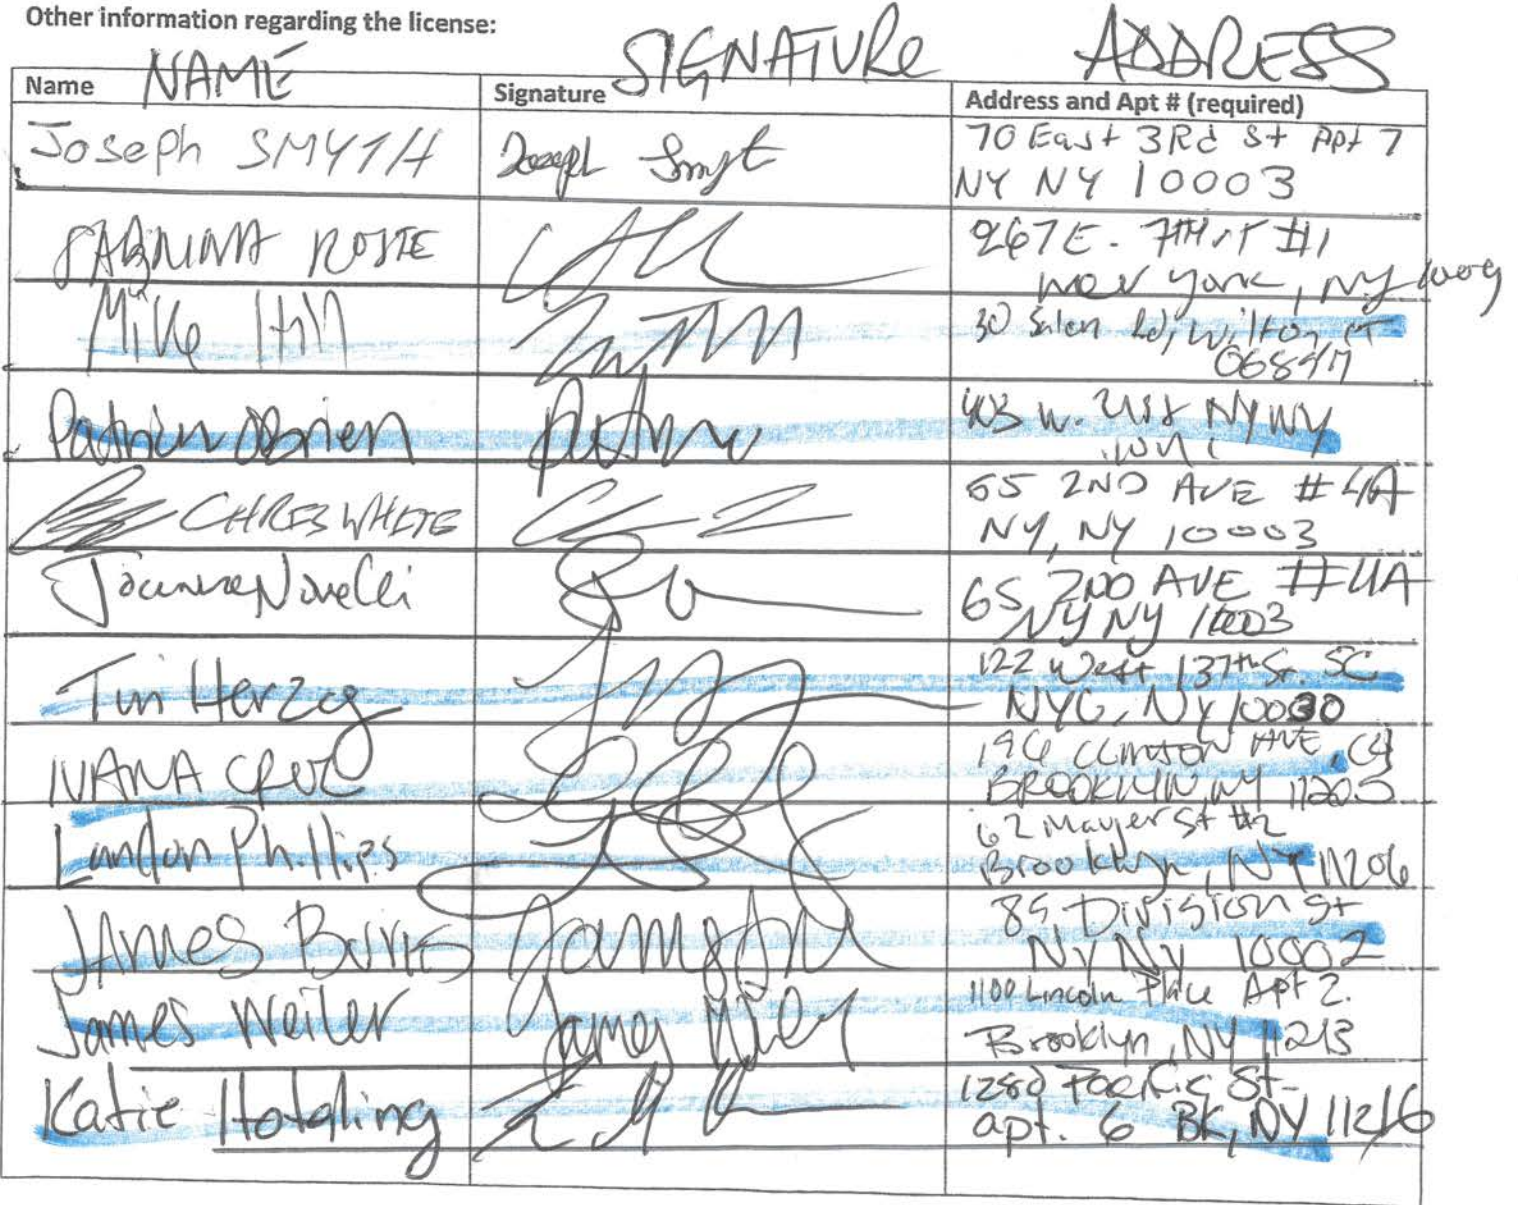 Other information regarding the license:
NAME SIGNATURE ADDRESS
Name Signature Address and Apt # (required)
Joseph SMYTH Joseph Smyt 70 East 3Rd St Apt 7
NY NY 10003
ROSTE 267 E. 7TH ST #1
New York, NY
Mike Hill 30 Rd, Wilton CT
06897
Patrick Obrien W. 21st NY NY
CHRIS WHITE 65 2ND AVE #4A
NY, NY 10003
Novelli 65 2ND AVE #4A
NY NY 10003
Tim Herzog 122 West 137th St 5C
NYC, NY 10030
IVANA CRUZ 196 CLINTON AVE, C4
BROOKLYN, NY 11205
Landon Phillips 62 Mauger St #2
Brooklyn, NY 11206
James Burke 89 Division St
NY NY 10002
James Weiler James 1100 Lincoln Place Apt 2.
Brooklyn, NY 11213
Katie Hotaling Pacific St
apt. 6 BK, NY 11216